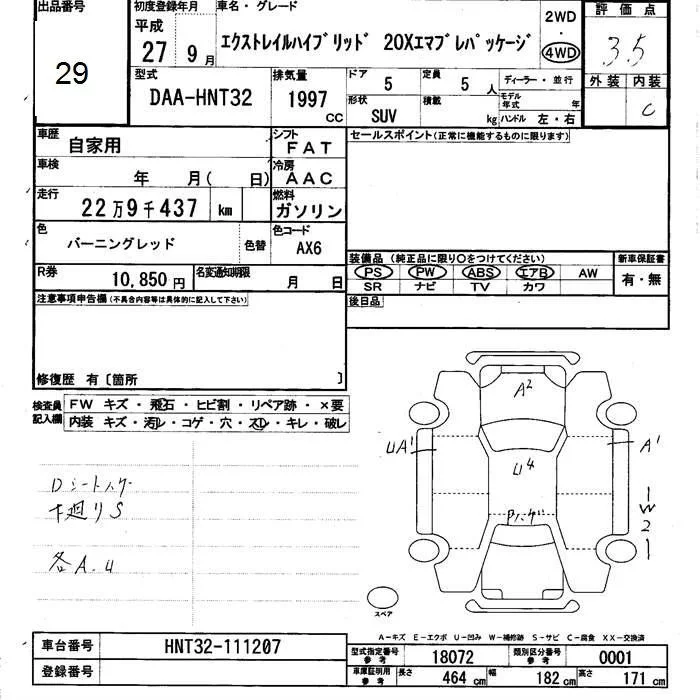 出品番号
29
初度登録年月
平成
27 9月
車名・グレード
エクストレイルハイブリッド 20Xエマブレパッケージ
2WD
・
4WD
評価点
3.5
外装 内装
C
型式
DAA-HNT32
排気量
1997
CC
ドア
5
定員
5人
形状
SUV
積載
kg
ディーラー・並行
モデル年式 年
ハンドル 左・右
車歴
自家用
シフト
FAT
車検
年 月( 日)
冷房
AAC
走行
22万9千437 km
燃料
ガソリン
色
バーニングレッド
色替
色コード
AX6
R券
10,850円
名変通知期限
月 日
セールスポイント(正常に機能するものに限ります)
装備品(純正品に限り〇をつけてください)
新車保証書
PS PW ABS エアB AW
SR ナビ TV カワ
有・無
後日品
注意事項申告欄(不具合内容等は具体的に記入して下さい)
修復歴 有〔箇所 〕
検査員記入欄
FW キズ・飛石・ヒビ割・リペア跡・×要
内装 キズ・汚レ・コゲ・穴・スレ・キレ・破レ
Dシートスワー
下廻りS
各A.U
A2
UA1
A1
U4
W2
スペア
A-キズ E-エクボ U-凹み W-補修跡 S-サビ C-腐食 XX-交換済
車台番号
HNT32-111207
登録番号
型式指定番号
参考
18072
類別区分番号
参考
0001
車庫証明用
参考
長さ 464cm 幅 182cm 高さ 171cm